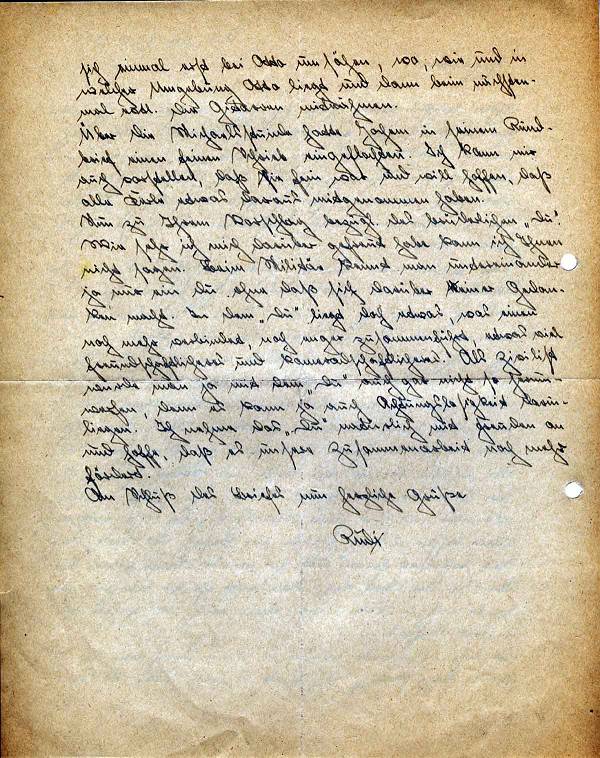 sich einmal erst bei Otto umsähen, wo, wie und in
welcher Umgebung Otto liegt und dann beim nächsten-
mal evtl. die Gitarren mitnähmen.
Über die Michaelsstunde hatte Jochen in seinem Rund-
brief einen feinen Schrieb eingeflochten. Ich kann mir
auch vorstellen, daß sie fein war und will hoffen, daß
alle Kerle etwas daraus mitgenommen haben.
Nun zu Ihrem Vorschlag bezügl. des brüderlichen „Du".
Wie sehr ich mich darüber gefreut habe kann ich Ihnen
nicht sagen. Beim Militär kennt man untereinander
ja nur ein Du ohne daß sich darüber keiner Gedan-
ken macht. In dem „Du" liegt doch etwas, was einen
noch mehr verbindet, noch enger zusammenführt, etwas viel
freundschaftlicheres und kameradschaftlicheres! Als Zivilist
würde man ja mit dem „Du" auch gar nicht so
werden, denn es kann ja auch Achtungslosigkeit darin-
liegen. Ich nehme das „Du" natürlich mit Freuden an
und hoffe, daß es unsere Zusammenarbeit noch mehr
fördert.
Am Schluß des Briefes nun herzliche Grüße
Rudi